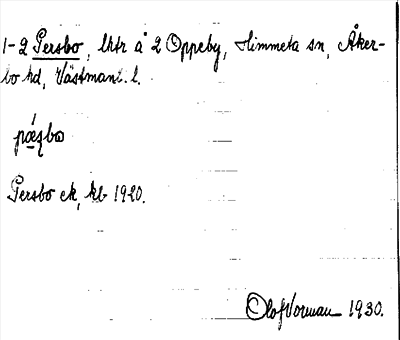 1-2 Persbo, lhtr å 2 Oppeby, Himmeta sn, Åker-
bo hd, Västmanl. l.
Persbo ek, kb 1920.
Olof Vorman 1930.